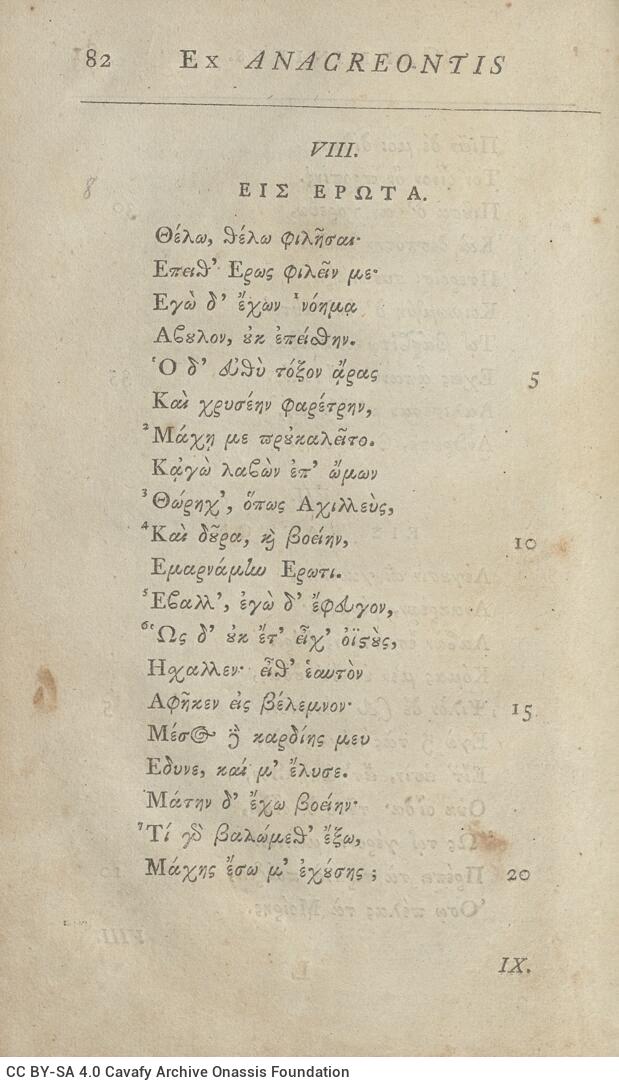 82 Ex ANACREONTIS
VIII.
8 ΕΙΣ ΕΡΩΤΑ.
Θέλω, θέλω φιλῆσαι·
Επειθ' Ερως φιλεῖν με·
Εγὼ δ' ἔχων ¹νόημα
Αβουλον, οὐκ ἐπείθην.
Ὁ δ' εὐθὺ τόξον ἄρας 5
Καὶ χρυσέην φαρέτρην,
²Μάχῃ με προὐκαλεῖτο.
Κᾀγὼ λαβὼν ἐπ' ὤμων
³Θώρηχ', ὅπως Αχιλλεὺς,
⁴Καὶ δοῦρα, καὶ βοείην, 10
Εμαρνάμην Ερωτι.
⁵Εβαλλ', ἐγὼ δ' ἔφευγον,
⁶Ὡς δ' οὐκ ἔτ' εἶχ' ὀϊστοὺς,
Ησχαλλεν· εἶθ' ἑαυτὸν
Αφῆκεν εἰς βέλεμνον· 15
Μέσος δὲ καρδίης μευ
Εδυνε, καί μ' ἔλυσε.
Μάτην δ' ἔχω βοείην·
⁷Τί γὰρ βαλώμεθ' ἔξω,
Μάχης ἔσω μ' ἐχούσης; 20
IX.
CC BY-SA 4.0 Cavafy Archive Onassis Foundation